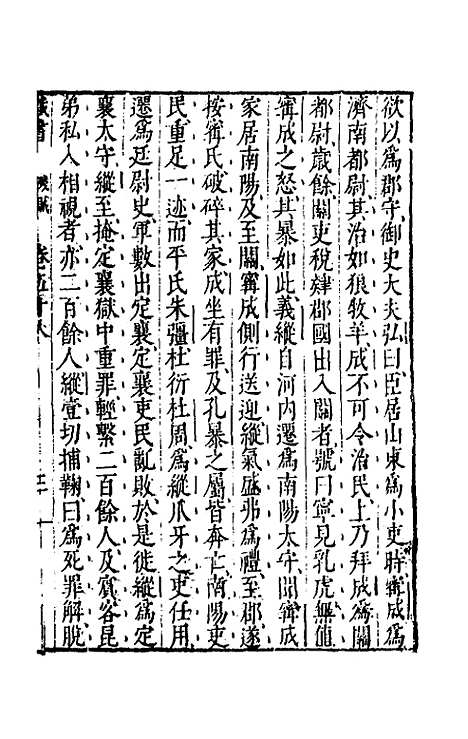 欲以爲郡守御史大夫弘曰臣居山東爲小吏時甯成爲
濟南都尉其治如狼牧羊成不可令治民上乃拜成爲關
都尉歳餘關吏稅肄郡國出入關者號曰寧見乳虎無値
甯成之怒其暴如此義縱自河内遷爲南陽太守聞甯成
家居南陽及至關甯成側行送迎縱氣盛弗爲禮至郡遂
按甯氏破碎其家成坐有罪及孔暴之屬皆奔亡南陽吏
民重足一迹而平氏朱彊杜衍杜周爲縱爪牙之吏任用
遷爲廷尉史軍數出定襄定襄吏民亂敗於是徙縱爲定
襄太守縱至掩定襄獄中重罪輕繫二百餘人及賓客昆
弟私人相視者亦二百餘人縱壹切捕鞠曰爲死罪解脫
藏書
卷五十八